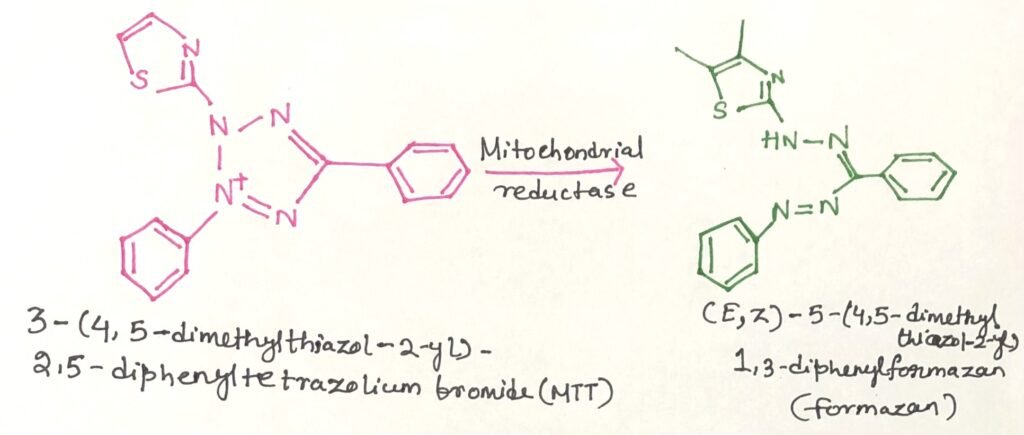 N
S
N
N
N+
N
Mitochondrial
reductase
N
S
HN-N
N=N
3-(4,5-dimethylthiazol-2-yl)-
2,5-diphenyltetrazolium bromide (MTT)
(E,Z)-5-(4,5-dimethyl
thiazol-2-yl)
1,3-diphenylformazan
(formazan)